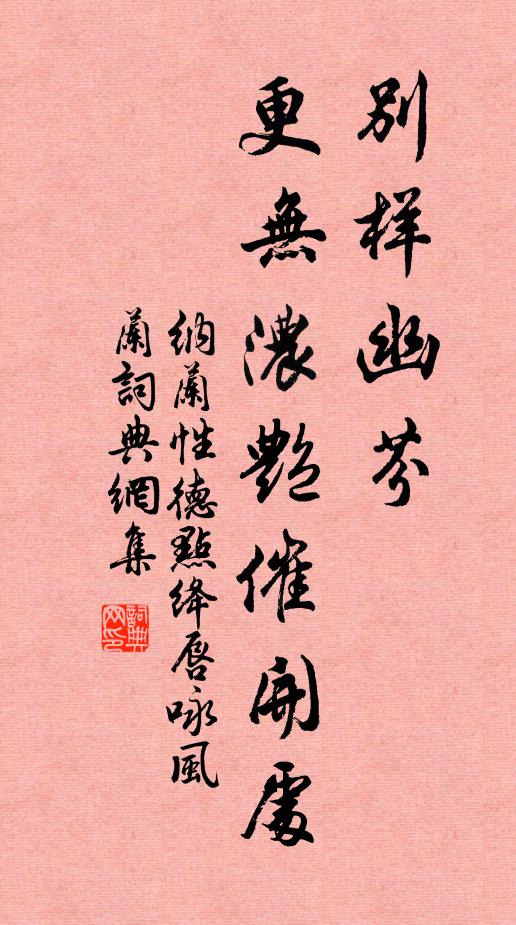 別样幽芬
更無濃艷催開處
納蘭性德點絳唇咏風
蘭詞典網集
詞典网印